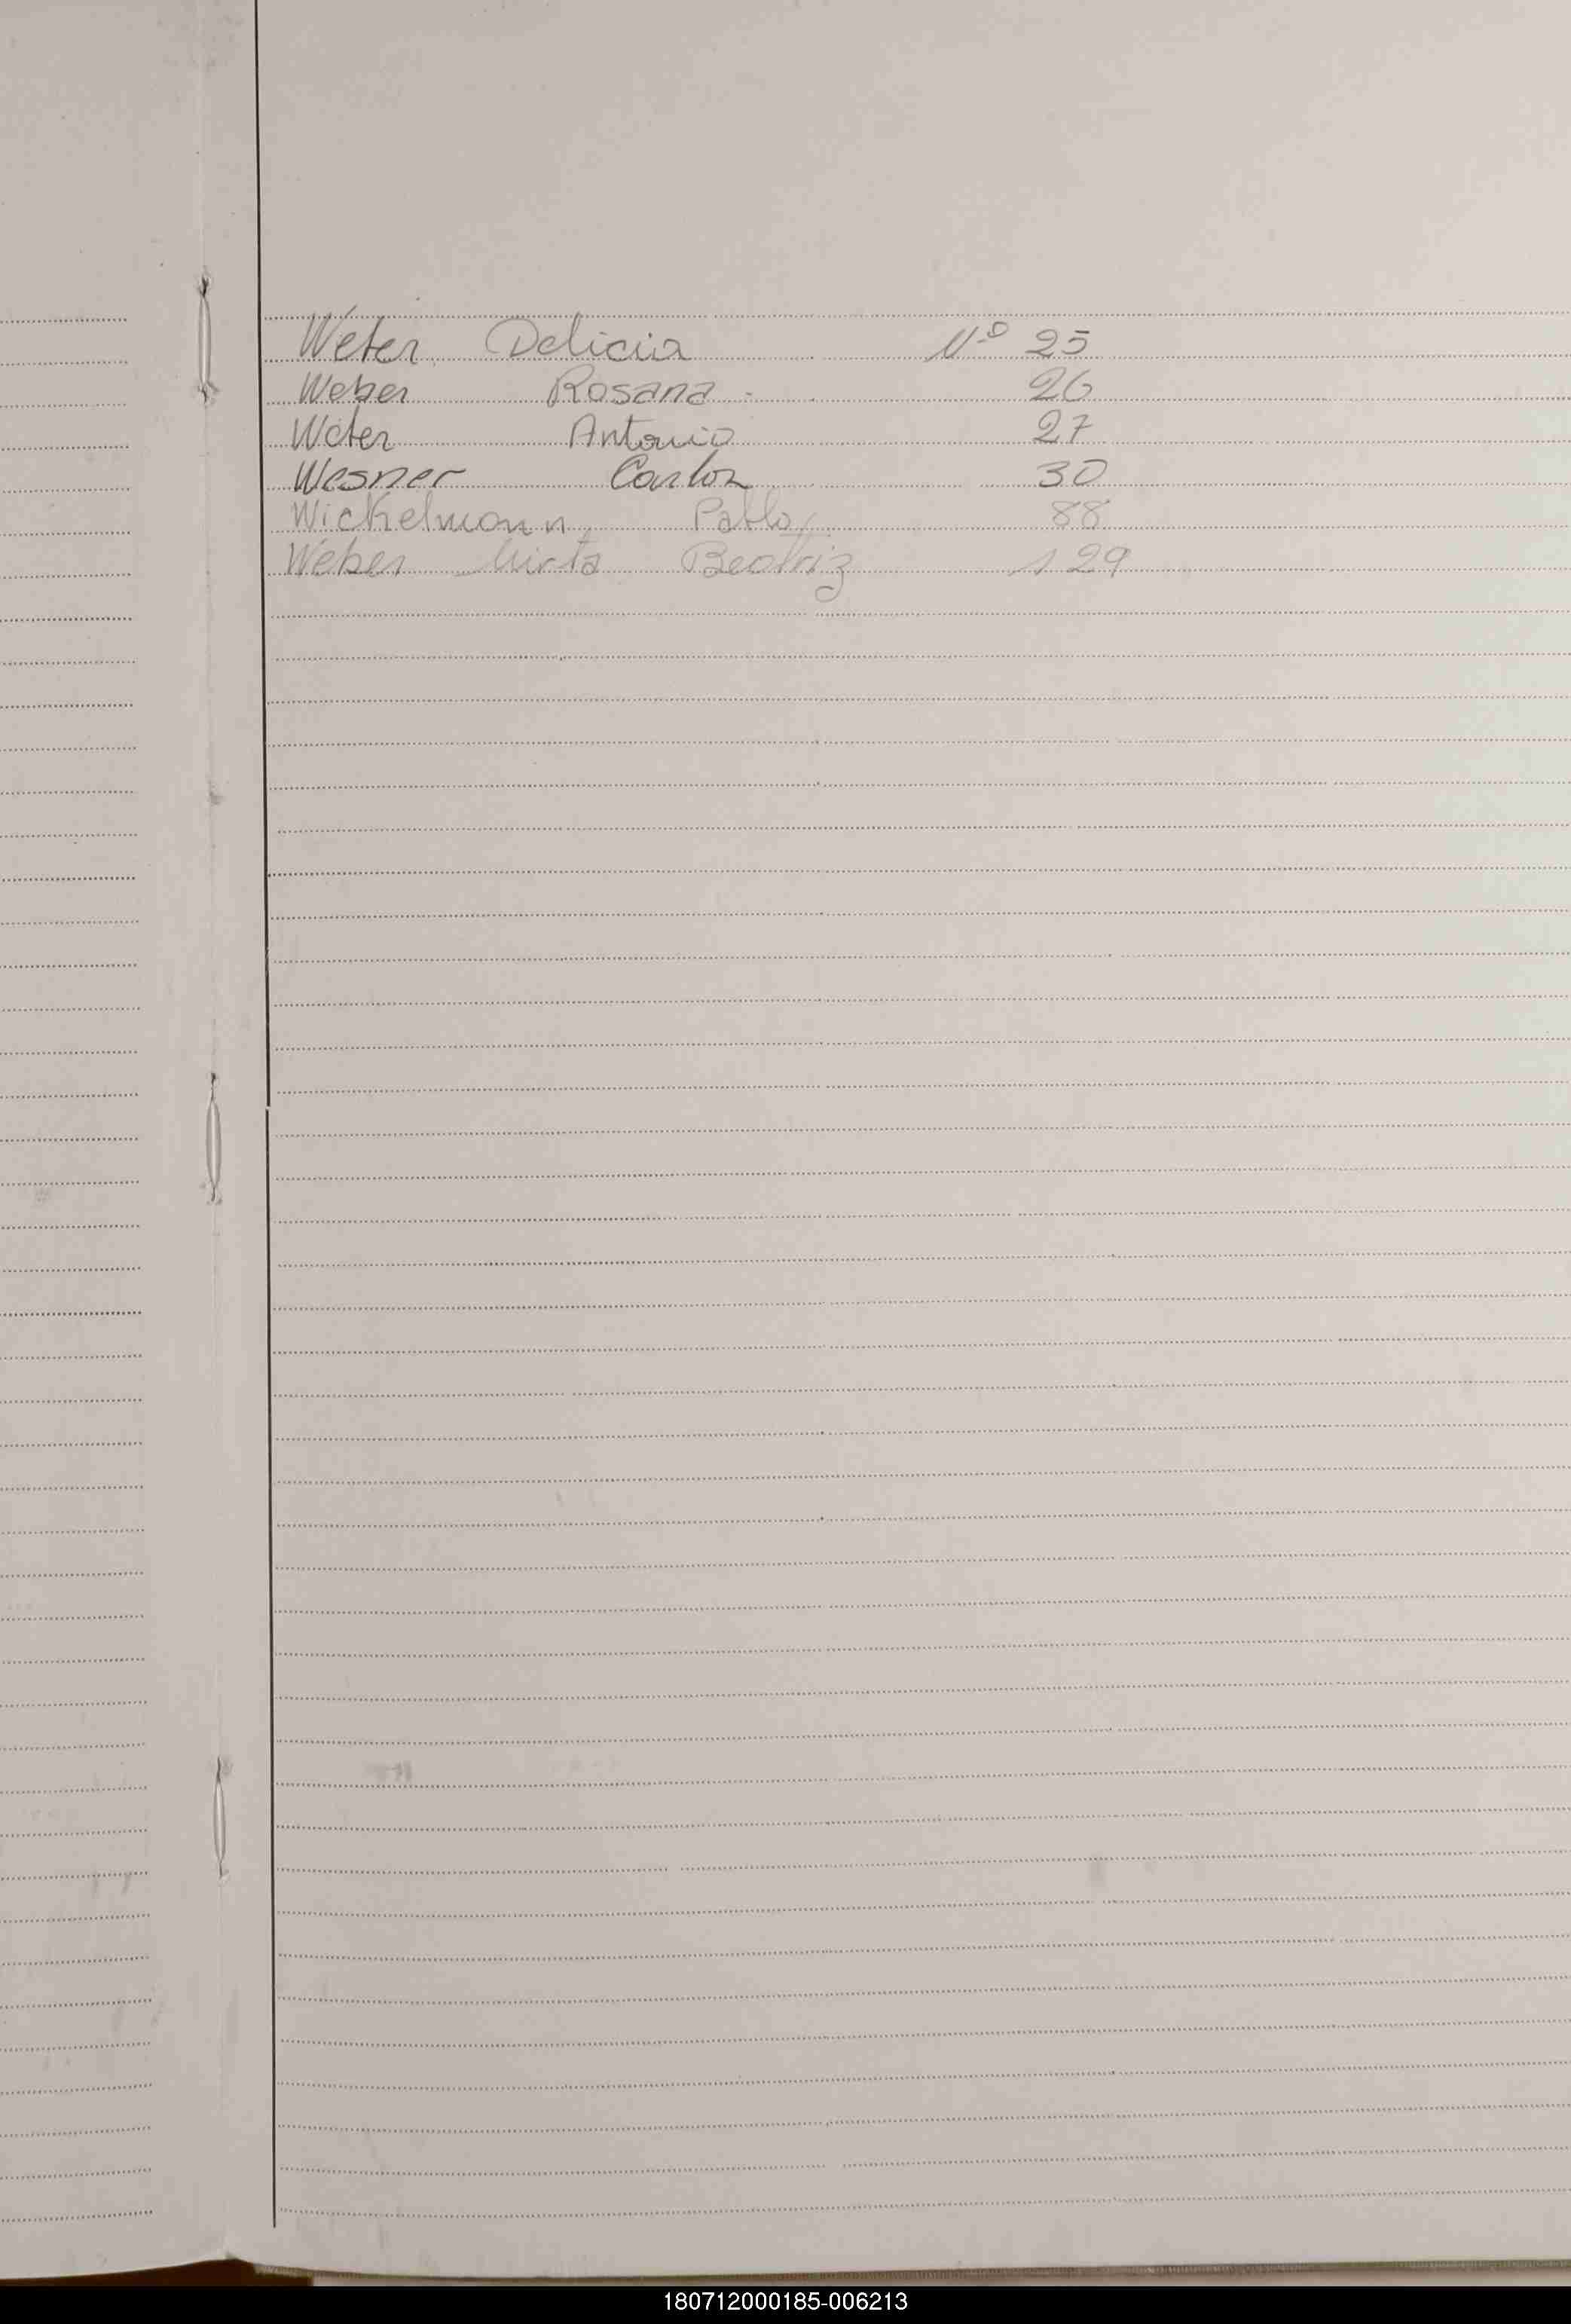 Weber Delicia Nº 25
Weber Rosana 26
Weber Antonio 27
Wesner Carlos 30
Wickelmann, Pablo 88
Weber Mirta Beatriz 129
180712000185-006213